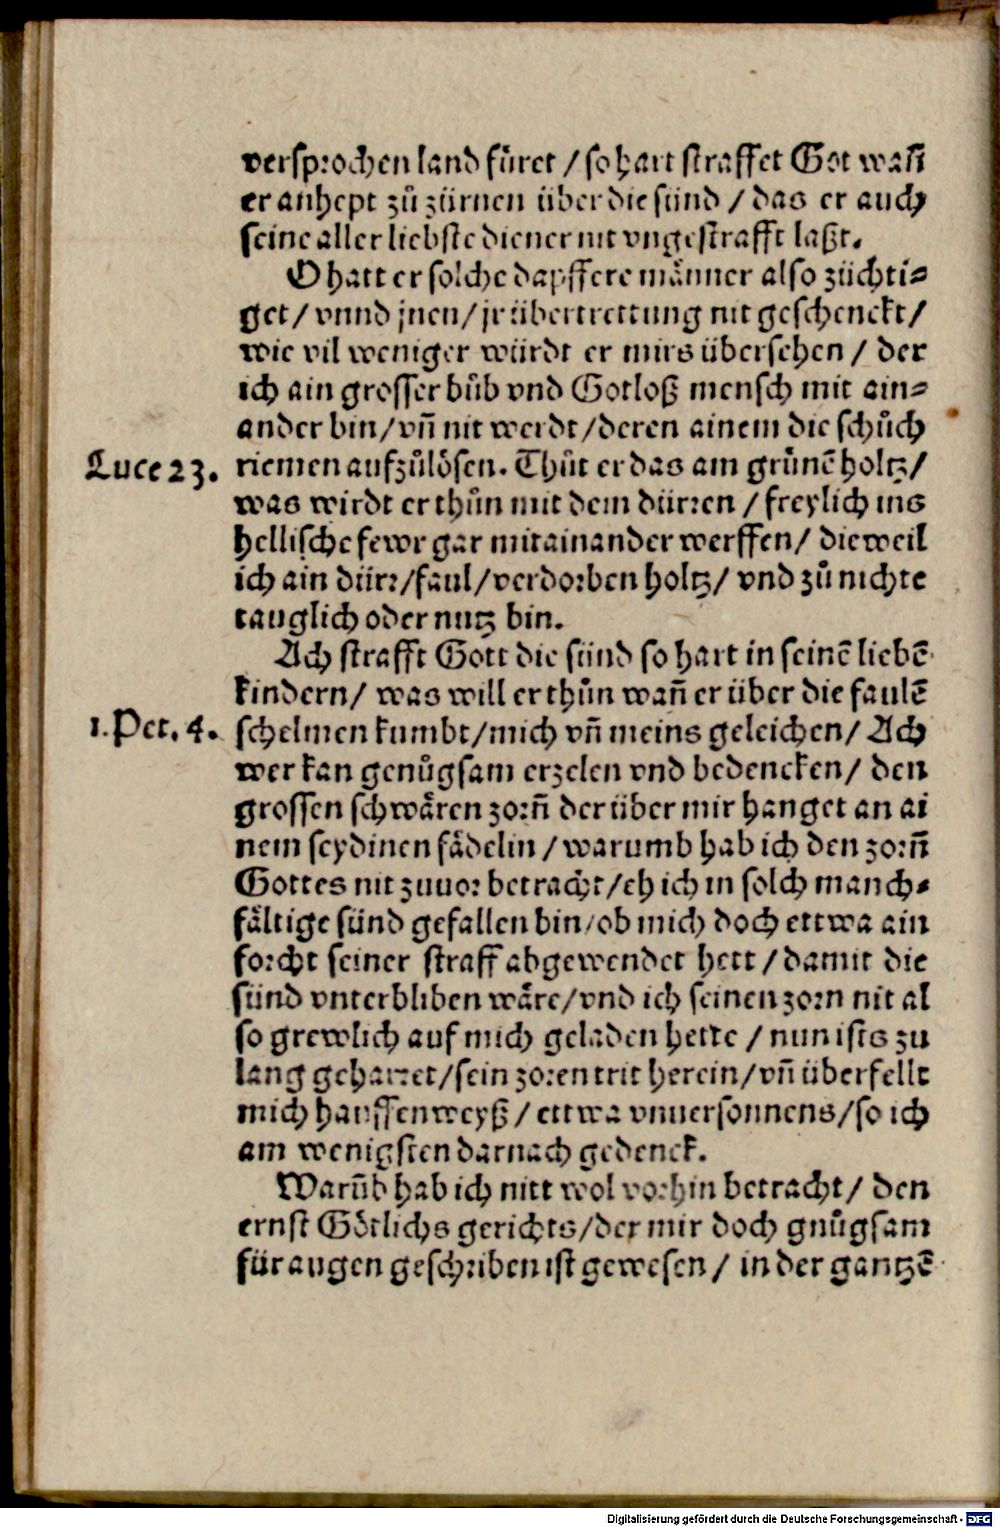 versprochen land füret / so hart straffet Got wañ
er anhept zů zürnen über die sünd / das er auch
seine aller liebste diener nit vngestrafft laßt.
O hatt er solche dapffere männer also züchti⸗
get / vnnd jnen / jr übertrettung nit geschenckt /
wie vil weniger würdt er mirs übersehen / der
ich ain grosser bůb vnd Gotloß mensch mit ain⸗
ander bin / vñ nit werdt / deren ainem die schůch
Luce 23. riemen aufzůlösen. Thůt er das am grůnē holtz /
was wirdt er thůn mit dem dürren / freylich ins
hellische fewr gar mitainander werffen / dieweil
ich ain dürr / faul / verdorben holtz / vnd zů nichte
tauglich oder nutz bin.
Ach strafft Gott die sünd so hart in seinē liebē
kindern / was will er thůn wañ er über die faulē
1. Pet. 4. schelmen kumbt / mich vñ meins geleichen / Ach
wer kan genůgsam erzelen vnd bedencken / den
grossen schwären zorñ der über mir hanget an ai
nem seydinen fädelin / warumb hab ich den zorñ
Gottes nit zuuor betracht / eh ich in solch manch⸗
fältige sünd gefallen bin / ob mich doch ettwa ain
forcht seiner straff abgewendet hett / damit die
sünd vnterbliben wäre / vnd ich seinen zorn nit al
so grewlich auf mich geladen hette / nun ists zu
lang geharret / sein zoren trit herein / vñ überfellt
mich hauffenweyß / ettwa vnuersonnens / so ich
am wenigsten darnach gedenck.
Warūb hab ich nitt wol vorhin betracht / den
ernst Götlichs gerichts / der mir doch gnůgsam
für augen geschriben ist gewesen / in der gantzē
Digitalisierung gefördert durch die Deutsche Forschungsgemeinschaft - DFG